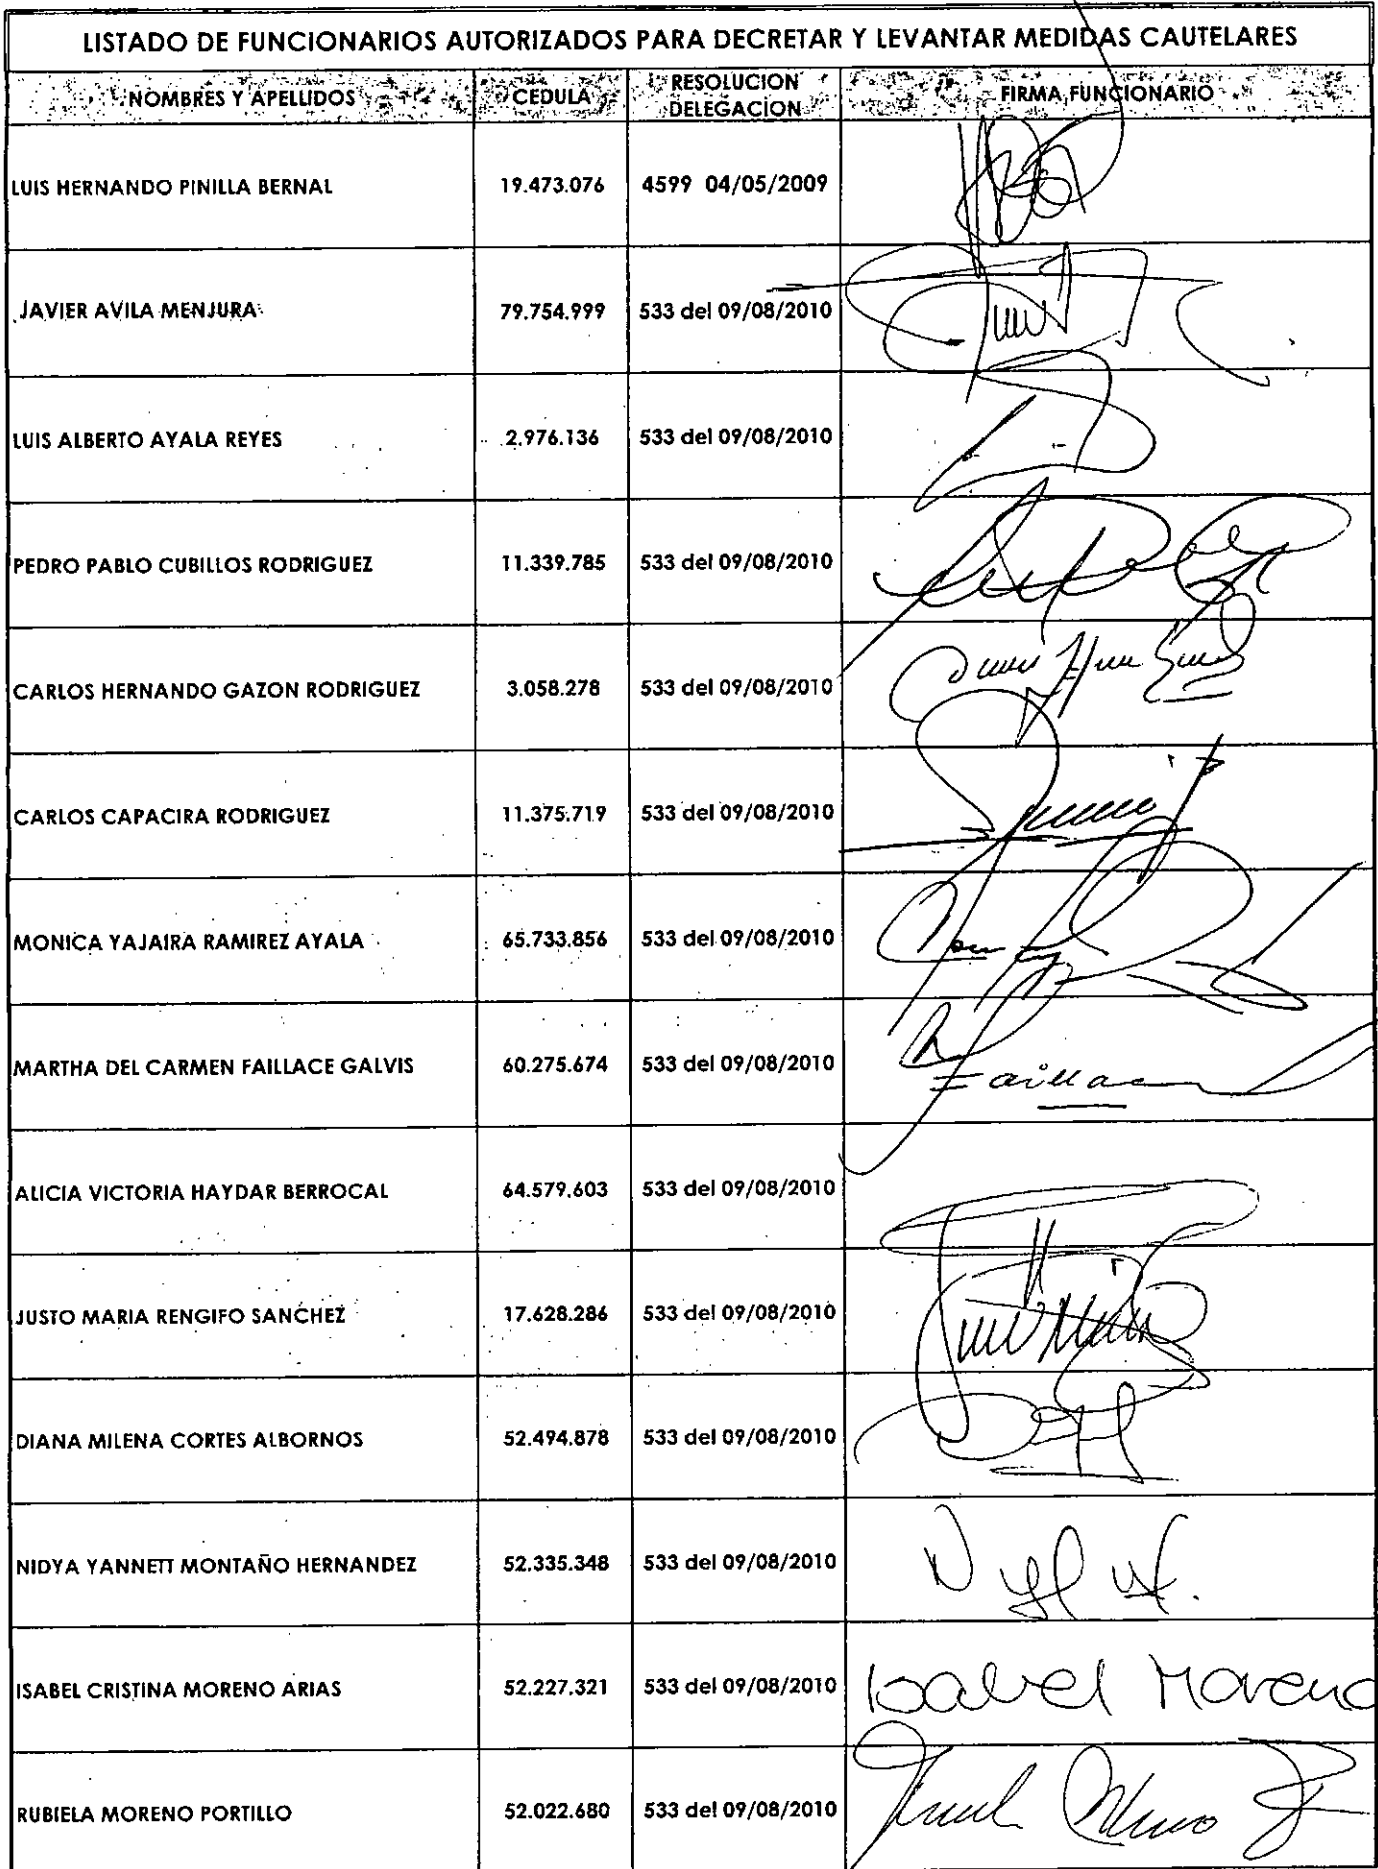 LISTADO DE FUNCIONARIOS AUTORIZADOS PARA DECRETAR Y LEVANTAR MEDIDAS CAUTELARES
NOMBRES Y APELLIDOS CEDULA RESOLUCION DELEGACION FIRMA FUNCIONARIO
LUIS HERNANDO PINILLA BERNAL 19.473.076 4599 04/05/2009
JAVIER AVILA MENJURA 79.754.999 533 del 09/08/2010
LUIS ALBERTO AYALA REYES 2.976.136 533 del 09/08/2010
PEDRO PABLO CUBILLOS RODRIGUEZ 11.339.785 533 del 09/08/2010
CARLOS HERNANDO GAZON RODRIGUEZ 3.058.278 533 del 09/08/2010
CARLOS CAPACIRA RODRIGUEZ 11.375.719 533 del 09/08/2010
MONICA YAJAIRA RAMIREZ AYALA 65.733.856 533 del 09/08/2010
MARTHA DEL CARMEN FAILLACE GALVIS 60.275.674 533 del 09/08/2010 Faillace
ALICIA VICTORIA HAYDAR BERROCAL 64.579.603 533 del 09/08/2010
JUSTO MARIA RENGIFO SANCHEZ 17.628.286 533 del 09/08/2010
DIANA MILENA CORTES ALBORNOS 52.494.878 533 del 09/08/2010
NIDYA YANNETT MONTAÑO HERNANDEZ 52.335.348 533 del 09/08/2010
ISABEL CRISTINA MORENO ARIAS 52.227.321 533 del 09/08/2010 Isabel Moreno
RUBIELA MORENO PORTILLO 52.022.680 533 del 09/08/2010